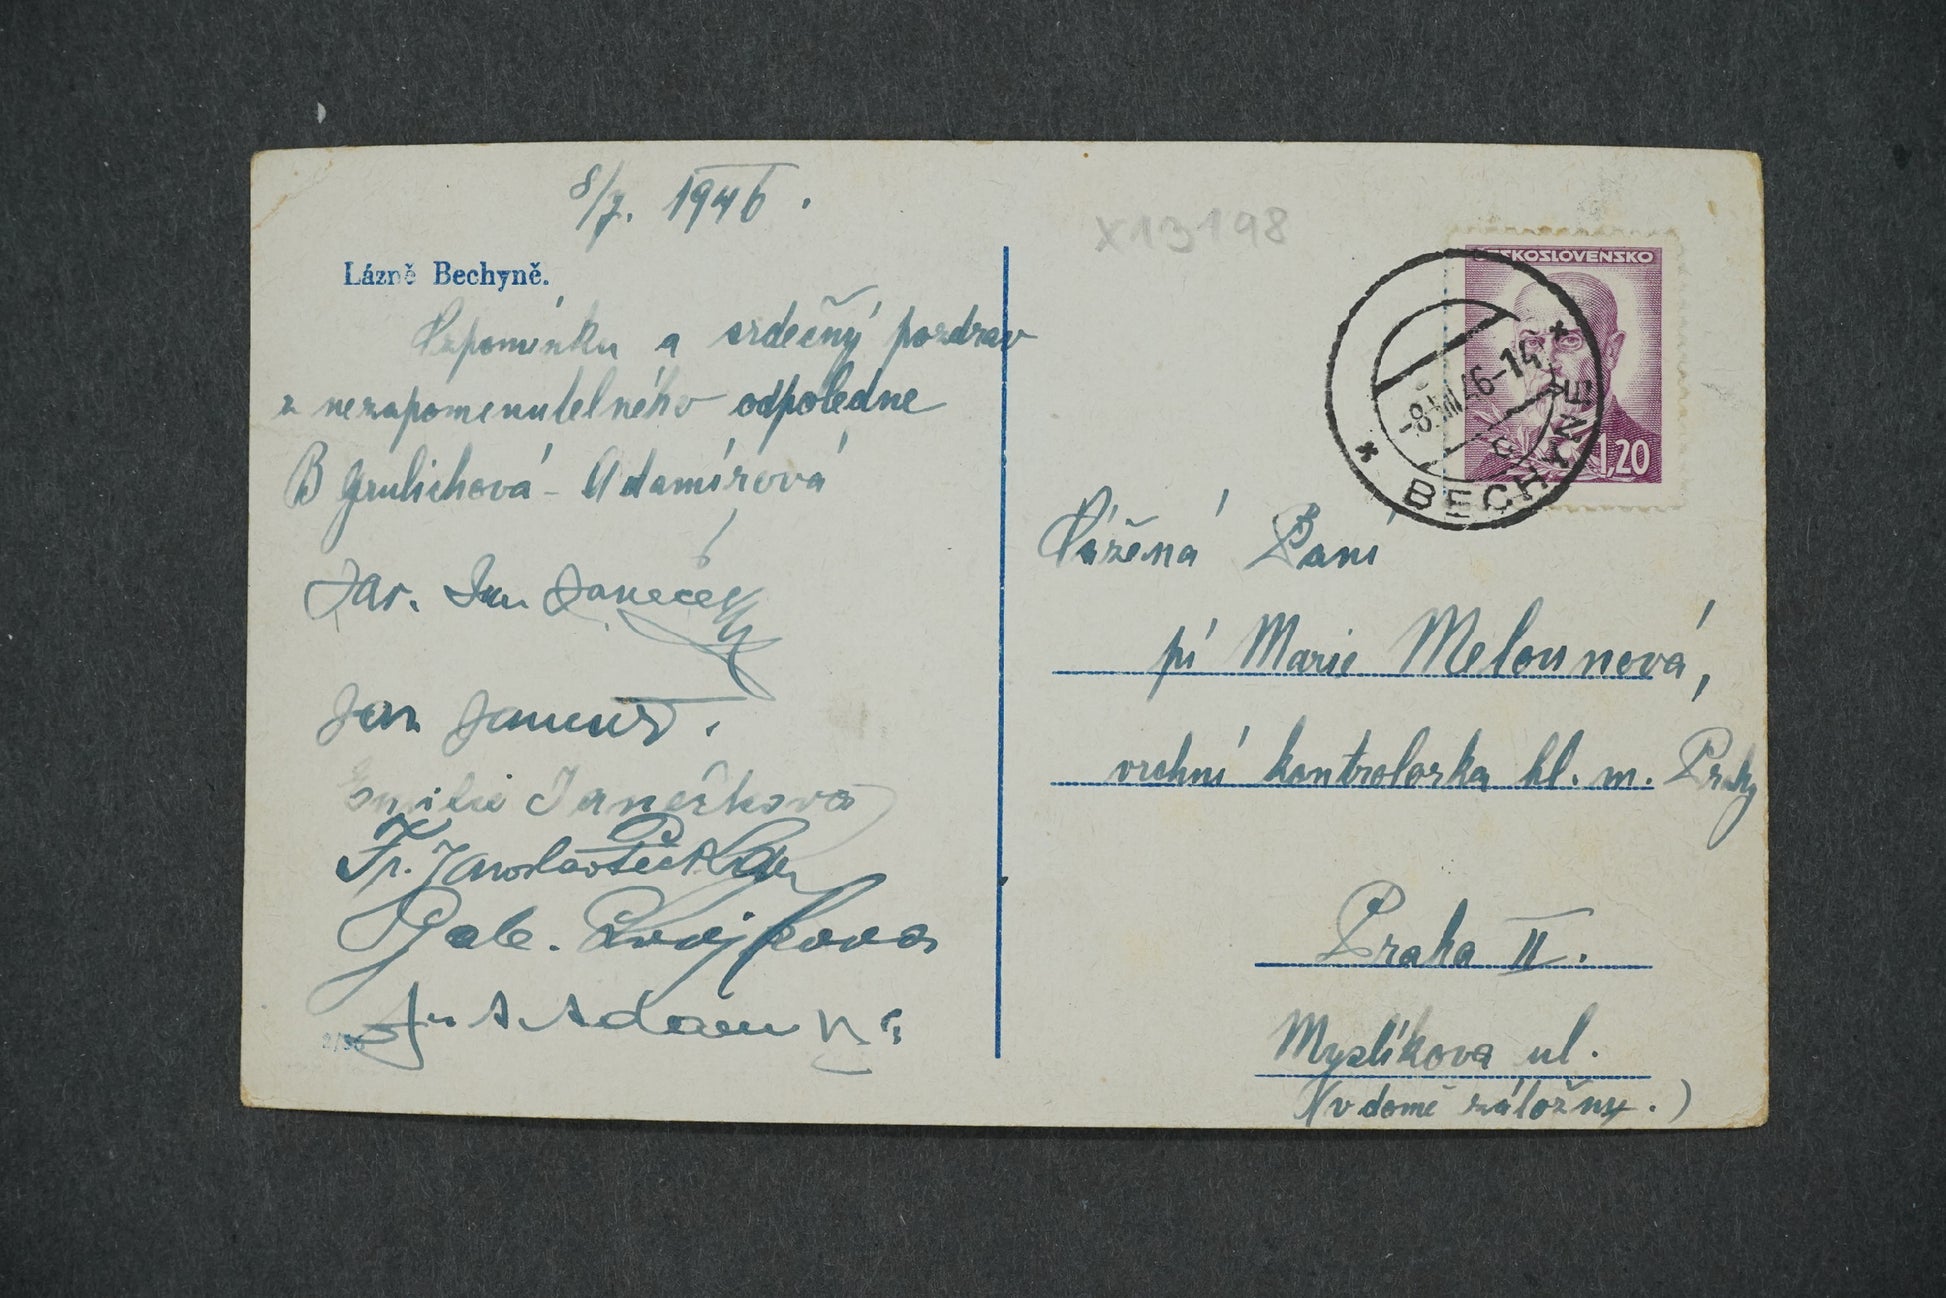 8/7. 1946.
Lázně Bechyně.
Vzpomínku a srdečný pozdrav
z nezapomenutelného odpoledne
B Grulichová - Adamírová
Jar. Janeček
Jan
Emilie Janečkova
Fr. Jaroslav
Gab.
X13198
ČESKOSLOVENSKO
1,20
-8.VII.46-14
BECHYNĚ
Vážená Paní
pí Marie Melounová,
vrchní kontrolorka hl. m. Prahy
Praha II.
Myslíkova ul.
(v domě záložny.)